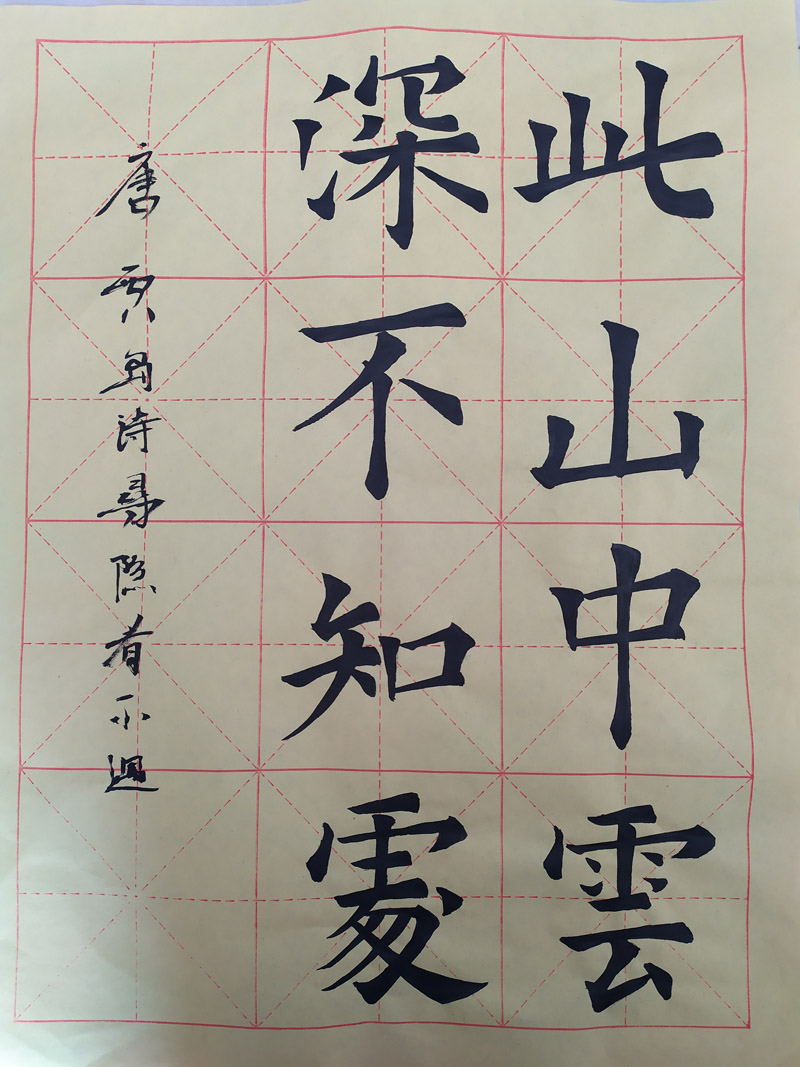 此山中雲
深不知處
唐賈島詩尋隱者不遇